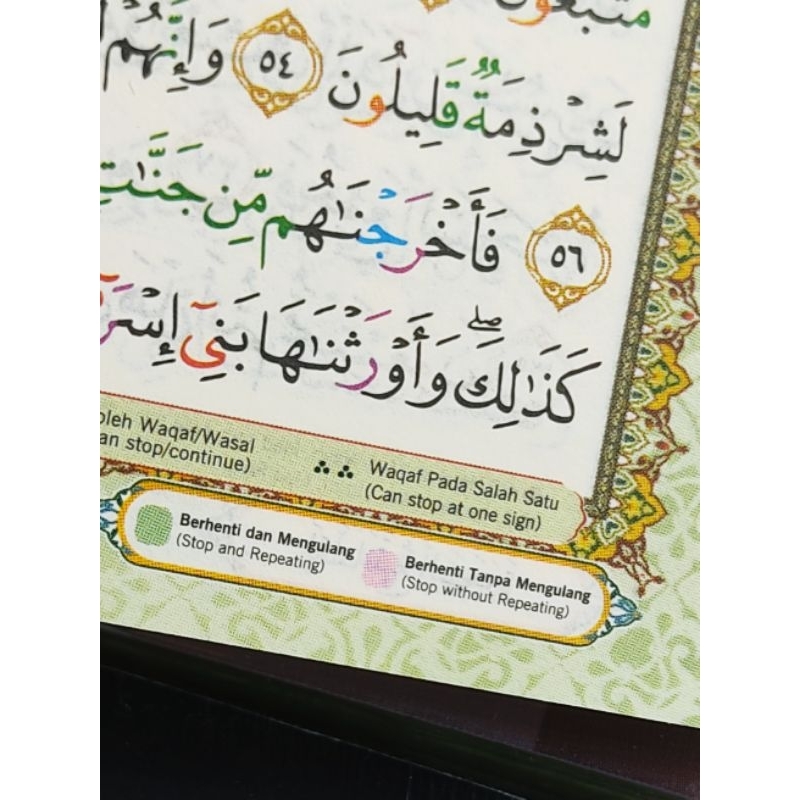 متبعون
لَشِرْذِمَةٌ قَلِيلُونَ ٥٤ وَإِنَّهُمْ
٥٦ فَأَخْرَجْنَٰهُم مِّن جَنَّٰتٍ
كَذَٰلِكَۖ وَأَوْرَثْنَٰهَا بَنِىٓ إِسْرَ
oleh Waqaf/Wasal
an stop/continue)
Waqaf Pada Salah Satu
(Can stop at one sign)
Berhenti dan Mengulang
(Stop and Repeating)
Berhenti Tanpa Mengulang
(Stop without Repeating)